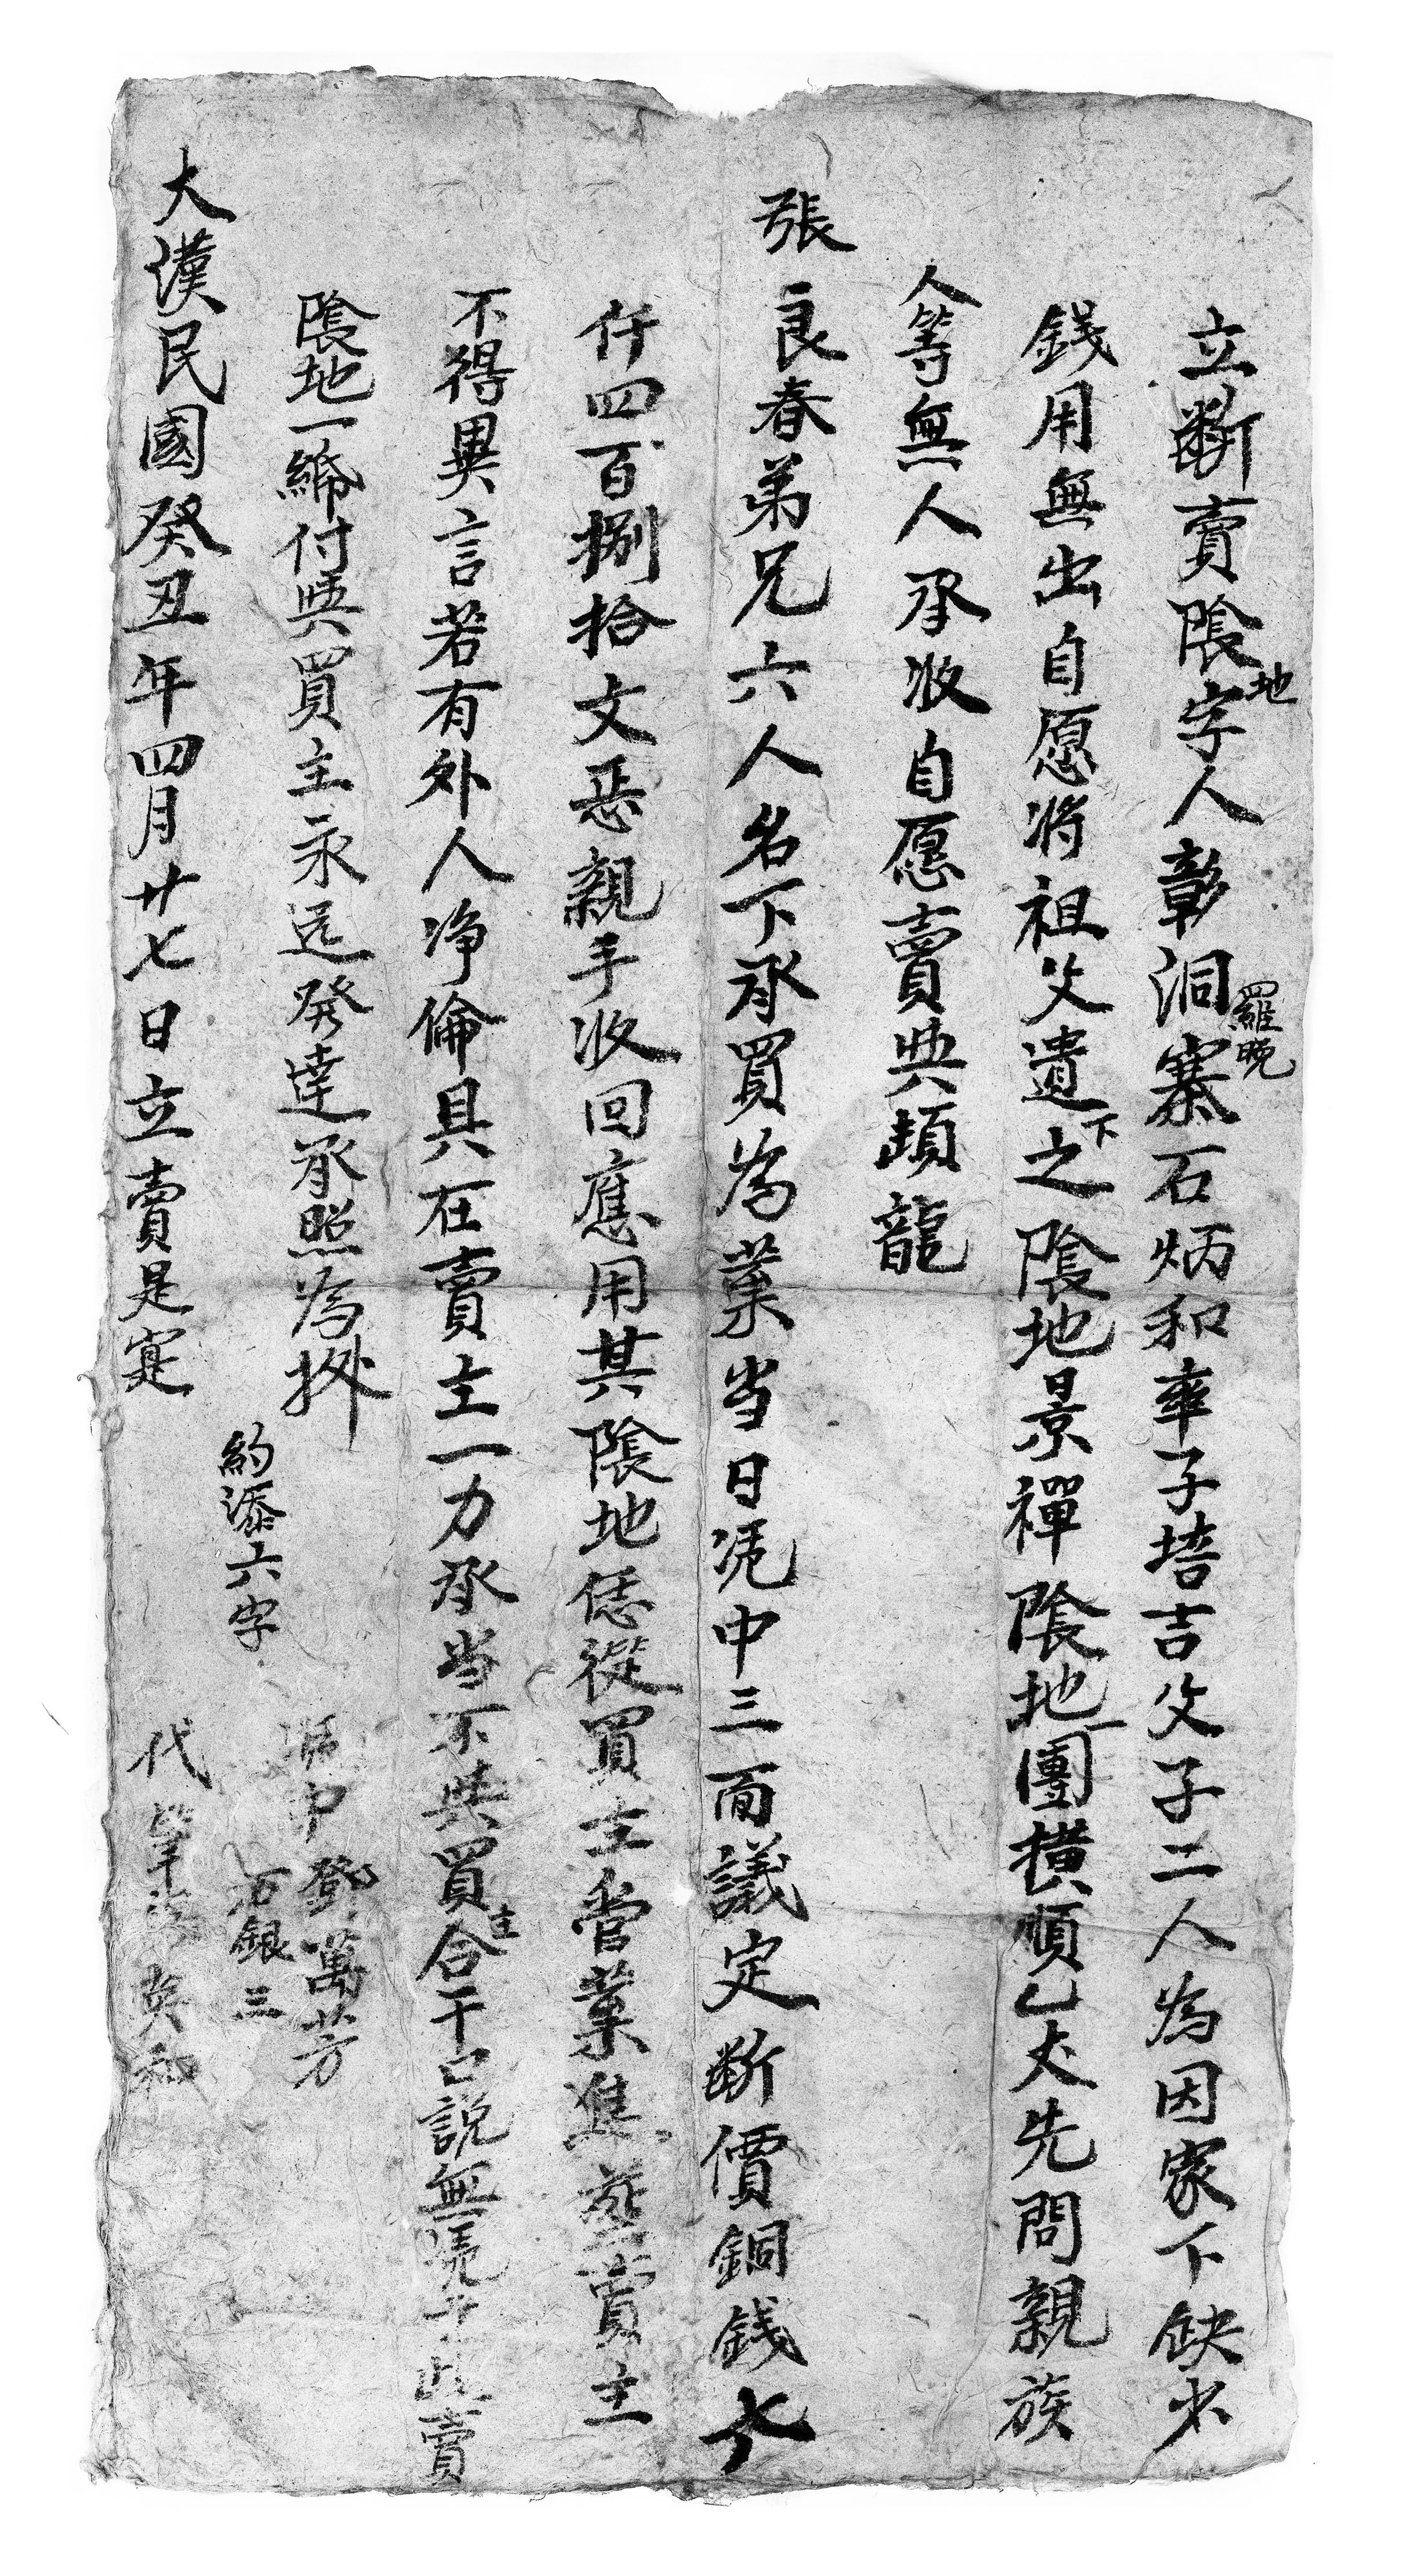 立斷賣陰地字人彰洞寨羅晚石炳和率子培吉父子二人為因家下缺少
錢用無出自愿將祖父遺下之陰地景禪陰地一團橫順乙丈先問親族
人等無人承收自愿賣與頭龍
張良春弟兄六人名下承買為業当日凭中三面議定斷價銅錢
仟四百捌拾文恶親手收回應用其陰地恁從買主管業進葬賣主
不得異言若有外人净倫具在賣主一力承当不與買主合干口說無憑立此賣
陰地一纸付與買主永远發達承照為㨿
約添六字
凭中 鄧萬芳
石銀三
代筆 英和
大漢民國癸丑年四月廿七日立賣是寔